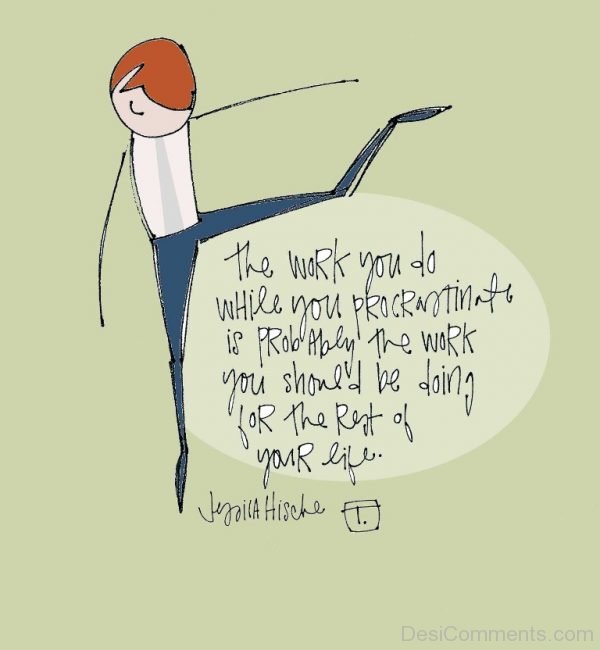 the woRk you do
wHile you pRocRastinate
is pRobAbly the woRk
you should be doing
foR the Rest of
youR life.
JessicA Hische T.
DesiComments.com